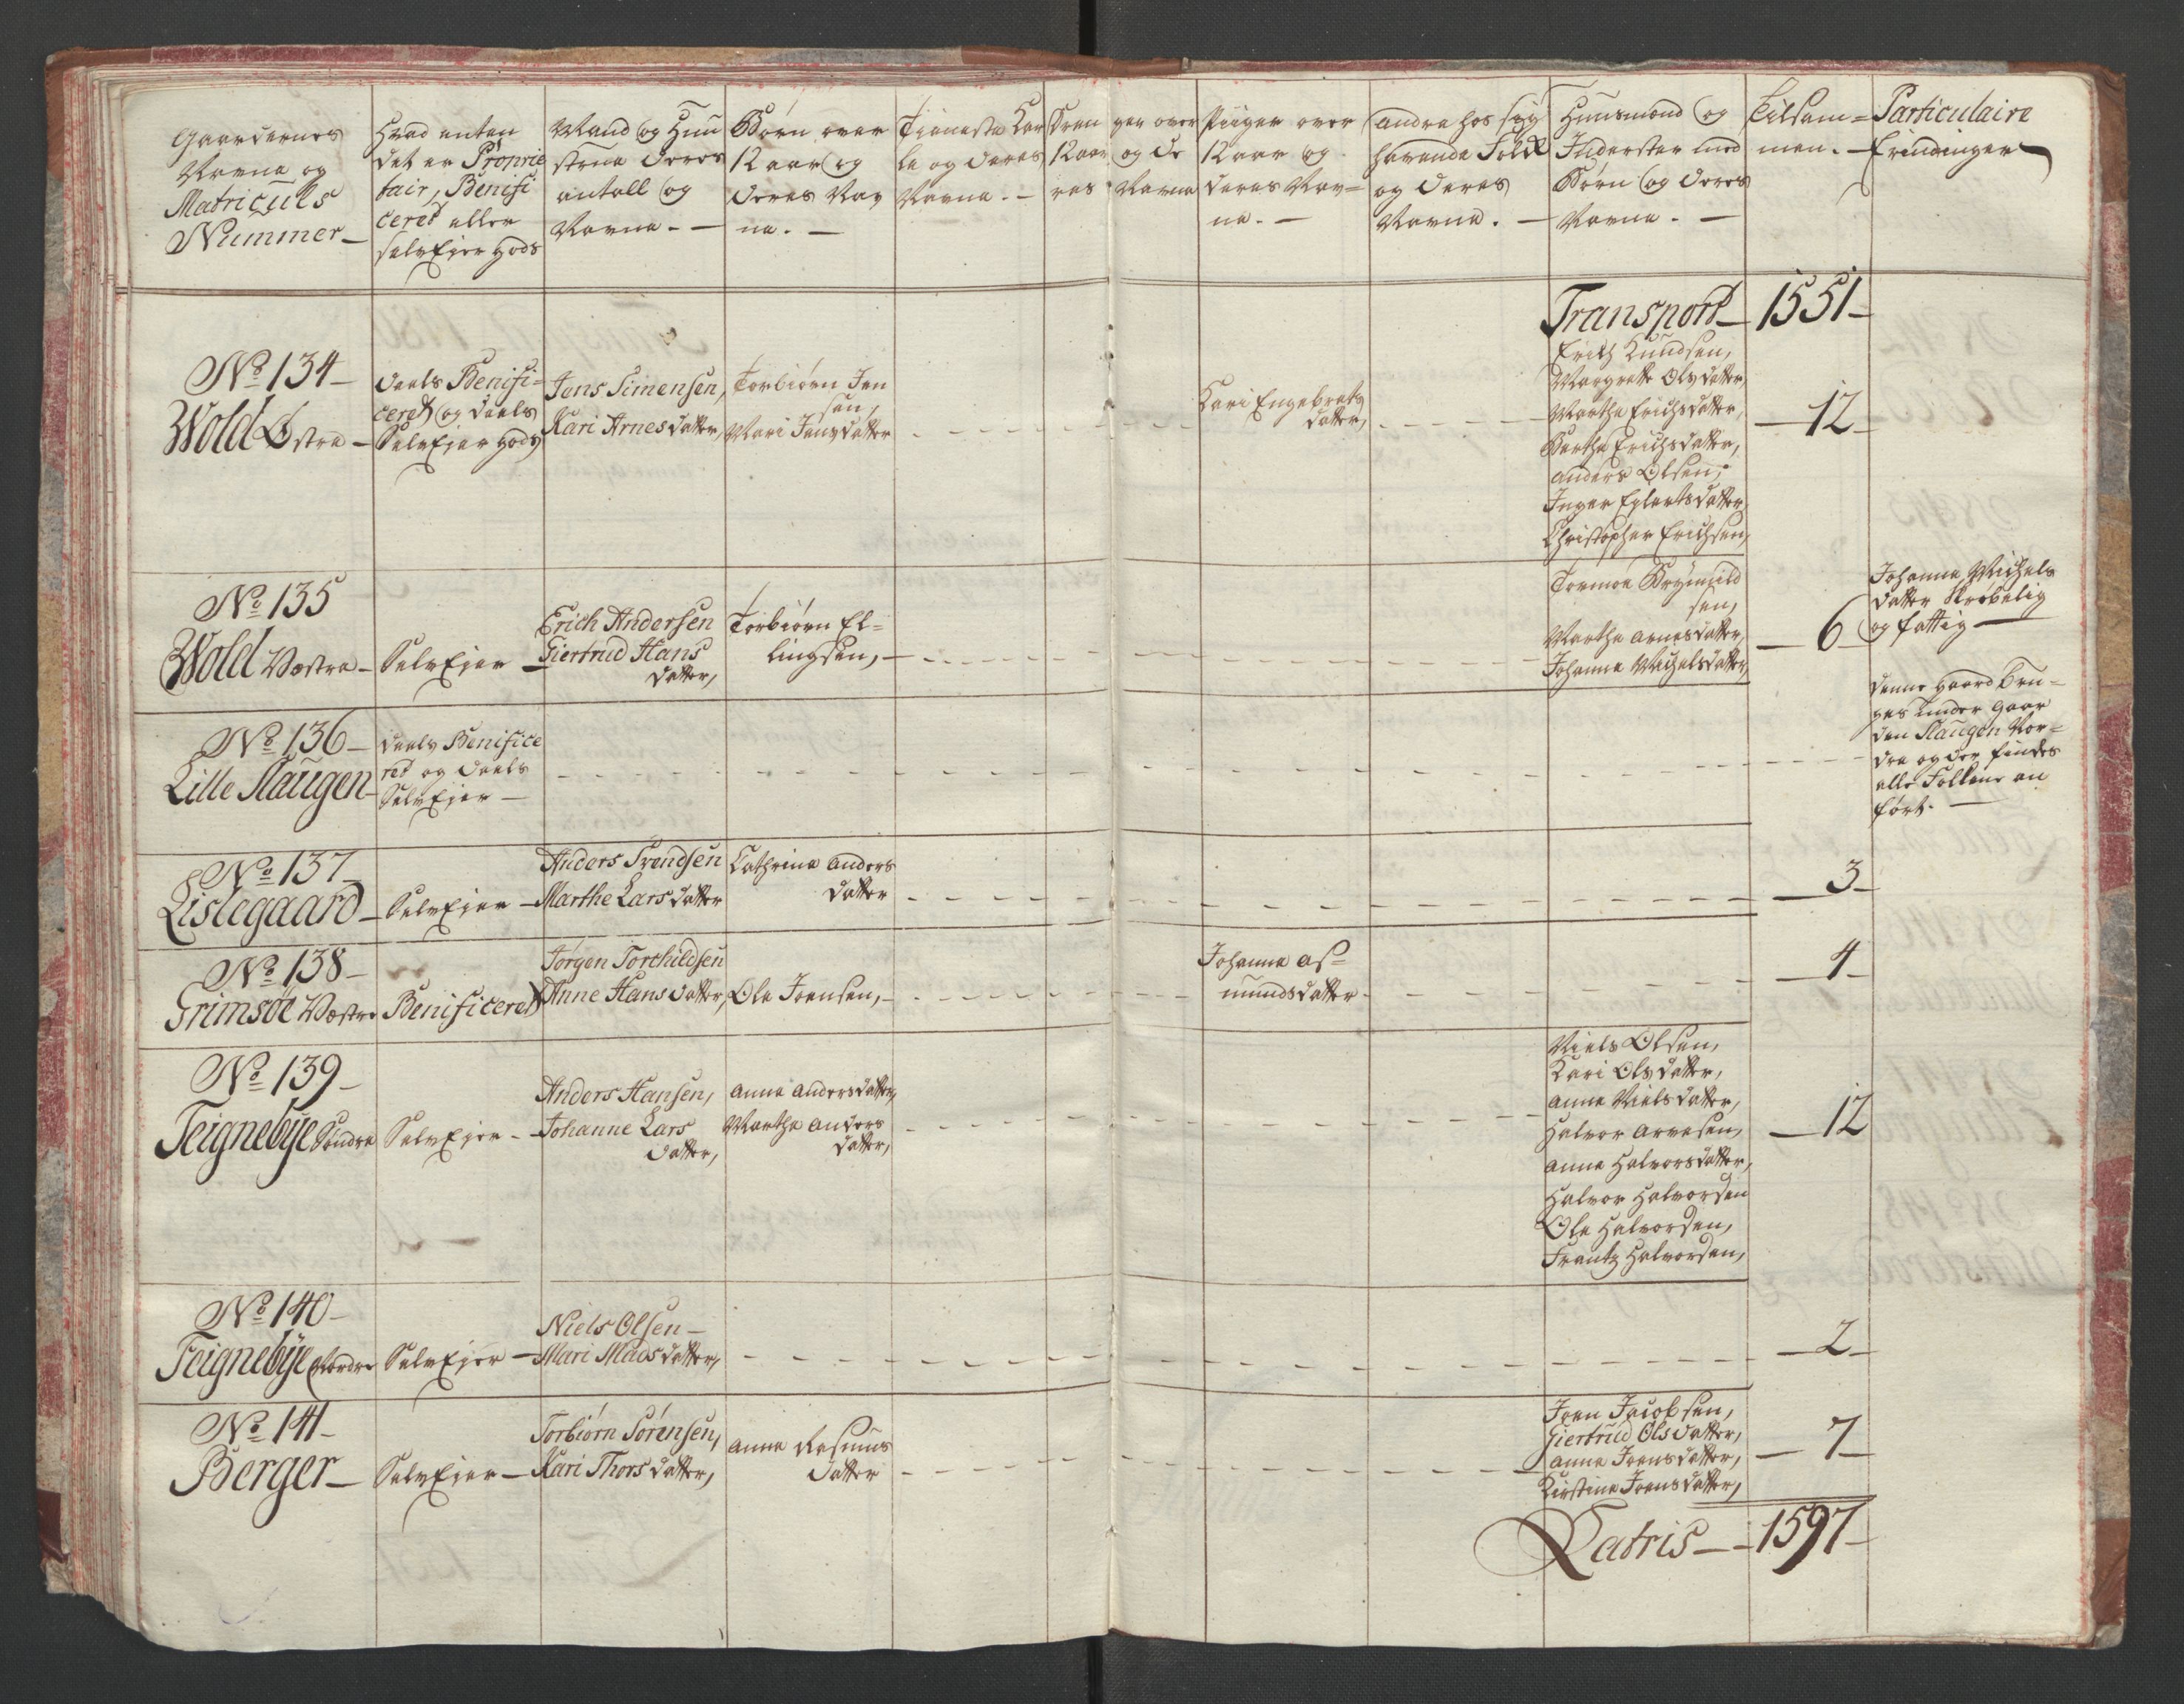 Gaardernes
Navne og
Matriculs
Nummer —
Hvad enten
det er Proprie
tair, Benifi
ceret eller
SelvEjer Gods
Mand og Huu
strue deres
antall og
Navne. —
Børn over
12 aar og
deres Nav
ne. —
Tieneste Kar
le og deres
Navne. —
Dren
12 aar
res
ger over
og de
Navne
Piiger over
12 aar og
deres Nav=
ne. —
Andre hos sig
havende Folk
og deres
Navne. —
Huusmænd og
Inderster med
Børn og deres
Navne. —
Tilsam=
men. —
Particulaire
Erindringer
Transport — 1551 —
No. 134 —
Wold Østre —
deels Benifi=
ceret og deels
SelvEjer Gods
Jens Simensen,
Kari Arnesdatter,
Torbiørn Jen
sen,
Mari Jensdatter
Kari Engebrets
datter,
Erich Knudsen,
Margrette Olsdatter,
Marthe Erichsdatter,
Berthe Erichsdatter,
Anders Olsen,
Inger Eglertsdatter,
Christopher Erichsen,
— 12 —
No. 135
Wold Vestre —
SelvEjer —
Erich Andersen
Giertrud Hans
datter,
Torbiørn El=
lingsen, —
Tormoe Brynnild
sen,
Marthe Arnesdatter,
Johanna Michelsdatter,
— 6 —
Johanna Michels
datter Skrøbelig
og fattig —
No. 136 —
Lille Haugen —
deels Benifice
ret og deels
SelvEjer —
denne Gaard bru=
ges under Gaar
den Haugen Nor=
dre og der findes
alle Folkene an
ført. —
No. 137 —
Lislegaard —
SelvEjer —
Anders Svendsen
Marthe Larsdatter
Cathrina Anders
datter
3 —
No. 138 —
Grimsøe Vestre
Benificeret
Jørgen Torchildsen
Anne Hansdatter,
Ole Joensen, —
Johanna As=
mundsdatter
— 4 —
No. 139 —
Teignebÿe Søndre
SelvEjer —
Anders Hansen,
Johanne Lars
datter,
Anna Andersdatter,
Marthe Anders
datter,
Niels Olsen,
Kari Olsdatter,
Anna Nielsdatter,
Halvor Arvesen,
Anna Halvorsdatter,
Halvor Halvorsen
Ole Halvorsen,
Frantz Halvorsen,
— 12
No. 140 —
Teignebÿe Nordre
SelvEjer —
Niels Olsen —
Mari Madsdatter,
— 2 —
No. 141 —
Berger —
SelvEjer —
Torbiørn Sørensen,
Kari Thorsdatter,
Anna Rasmus
datter
Joen Jacobsen,
Giertrud Olsdatter,
Anna Joensdatter,
Kirstine Joensdatter,
— 7 —
Latris — 1597 —